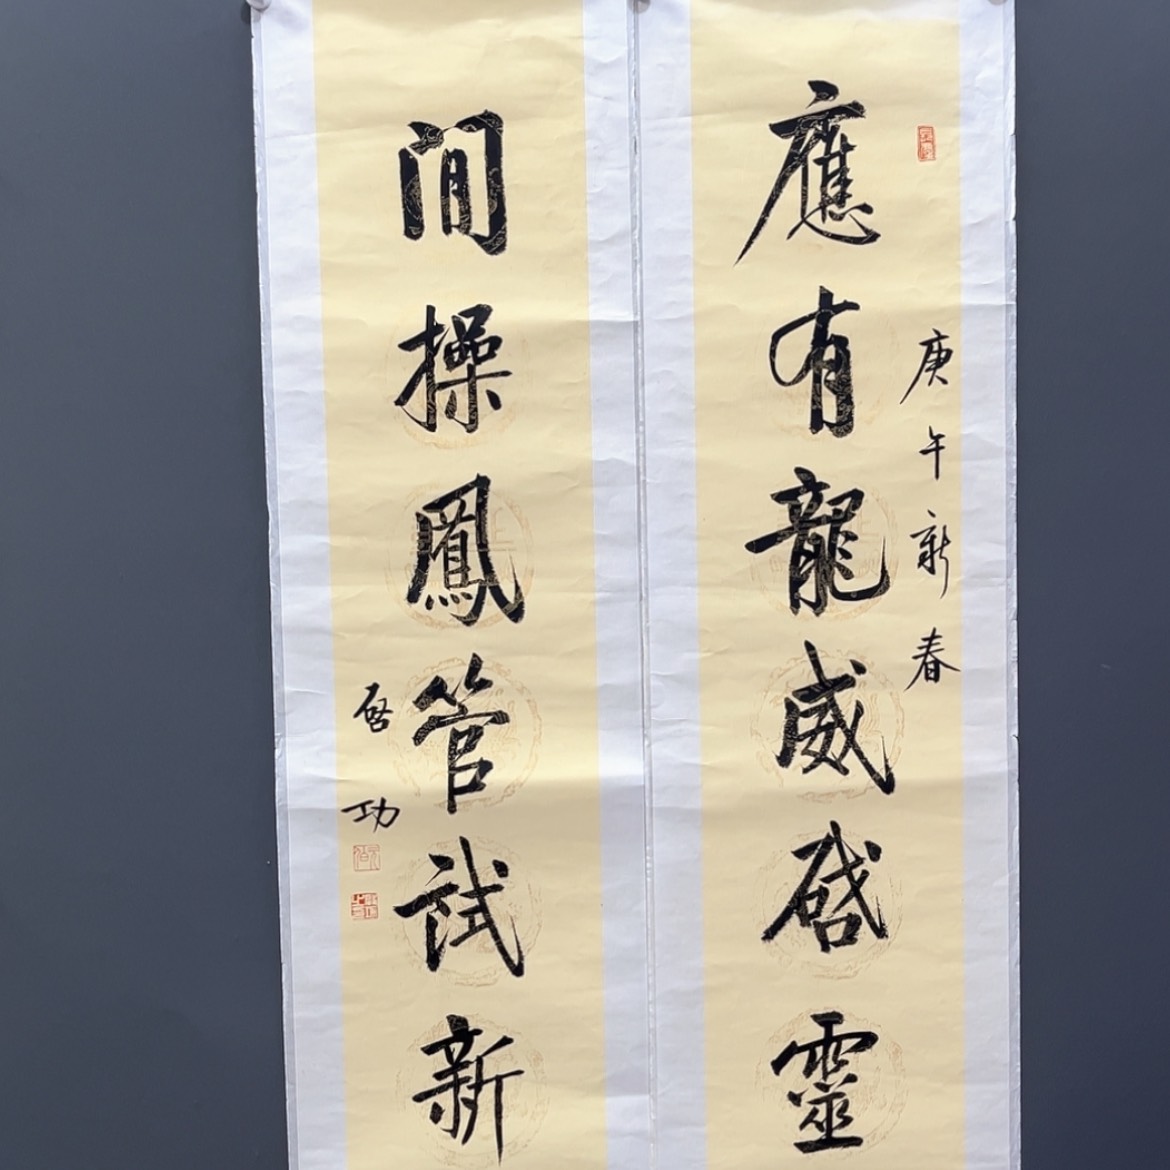 庚午新春
應有龍威啟靈
閒操鳳管試新
啓功